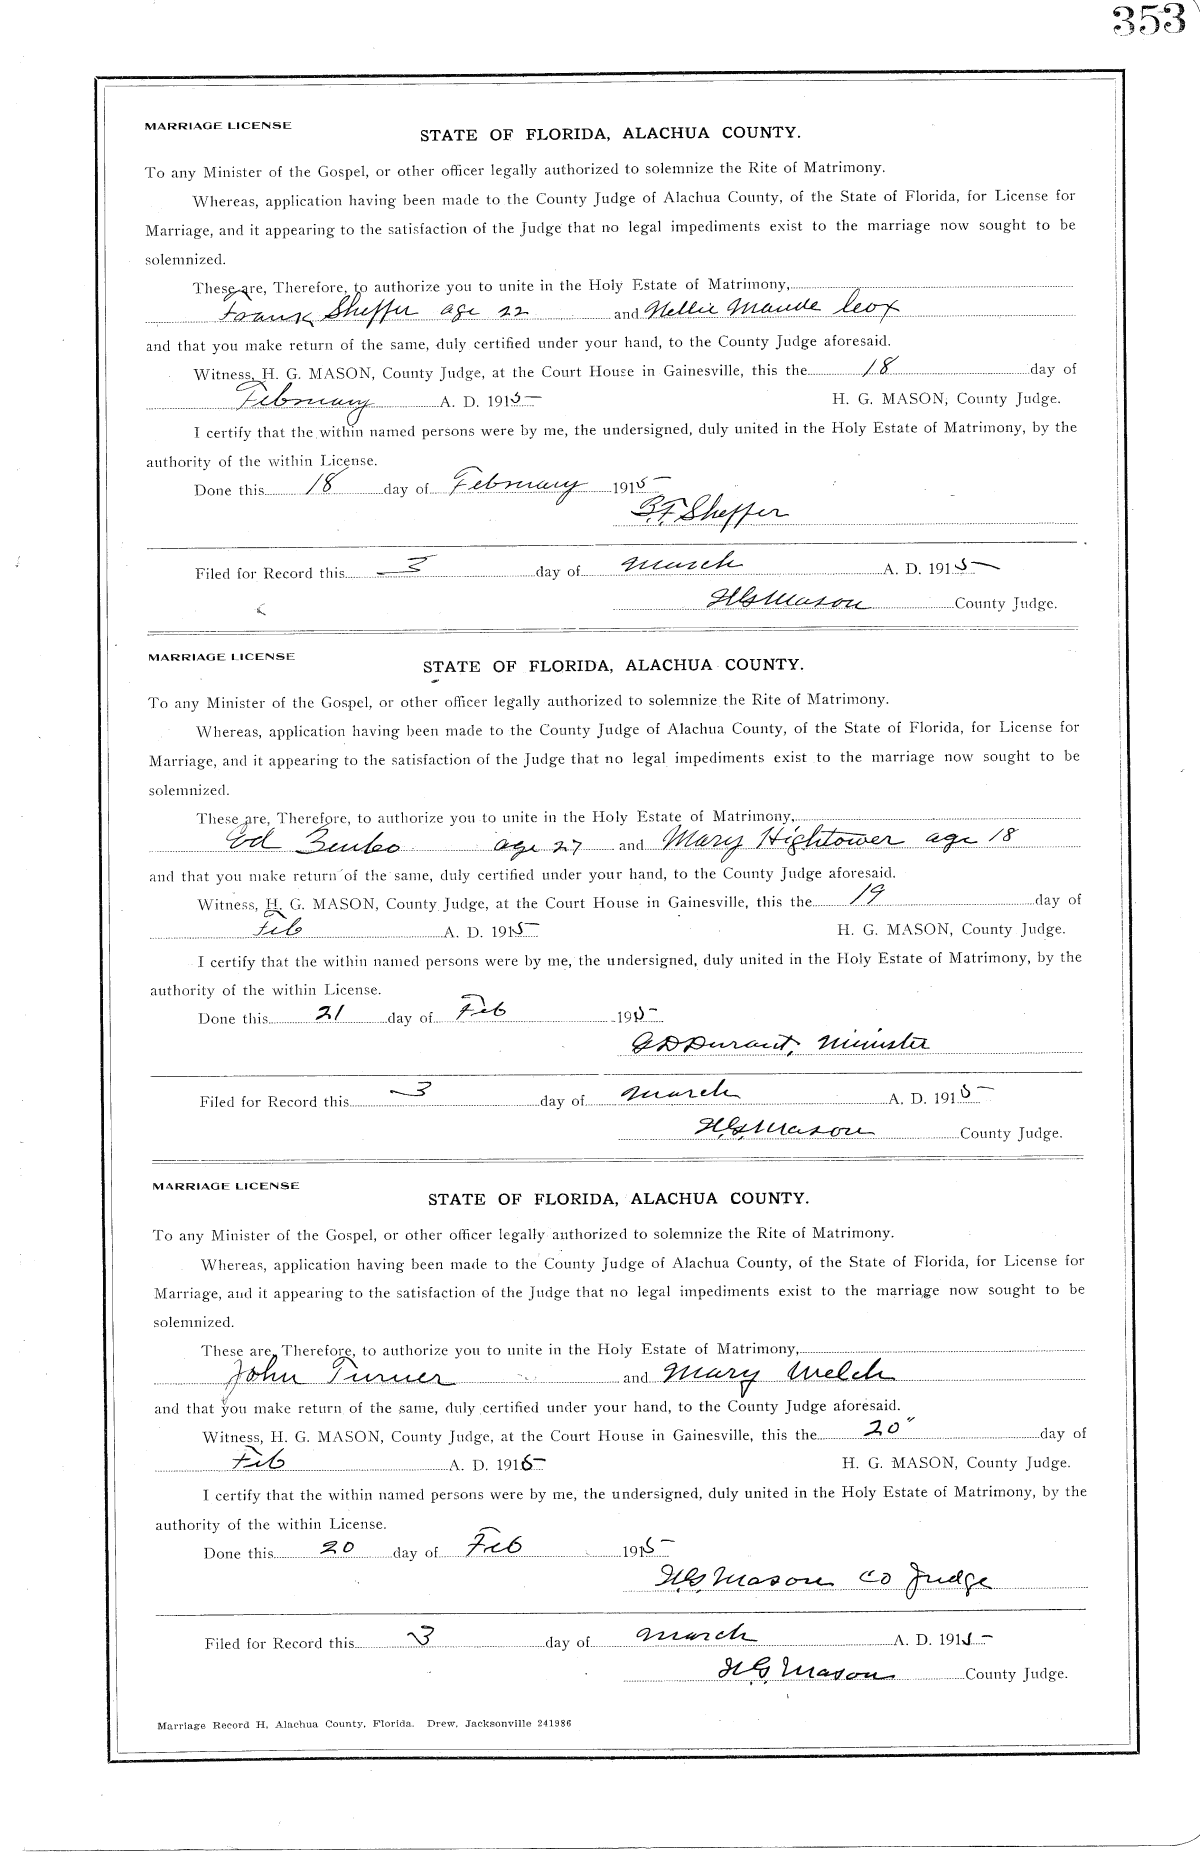 353
MARRIAGE LICENSE
STATE OF FLORIDA, ALACHUA COUNTY.
To any Minister of the Gospel, or other officer legally authorized to solemnize the Rite of Matrimony.
Whereas, application having been made to the County Judge of Alachua County, of the State of Florida, for License for
Marriage, and it appearing to the satisfaction of the Judge that no legal impediments exist to the marriage now sought to be
solemnized.
These are, Therefore, to authorize you to unite in the Holy Estate of Matrimony,
Frank Sheffer age 22 and Nellie Maude Cox
and that you make return of the same, duly certified under your hand, to the County Judge aforesaid.
Witness, H. G. MASON, County Judge, at the Court House in Gainesville, this the 18 day of
February A. D. 1915 H. G. MASON, County Judge.
I certify that the within named persons were by me, the undersigned, duly united in the Holy Estate of Matrimony, by the
authority of the within License.
Done this 18 day of February 1915
B.F. Sheffer
Filed for Record this 3 day of March A. D. 1915
H G Mason County Judge.
MARRIAGE LICENSE
STATE OF FLORIDA, ALACHUA COUNTY.
To any Minister of the Gospel, or other officer legally authorized to solemnize the Rite of Matrimony.
Whereas, application having been made to the County Judge of Alachua County, of the State of Florida, for License for
Marriage, and it appearing to the satisfaction of the Judge that no legal impediments exist to the marriage now sought to be
solemnized.
These are, Therefore, to authorize you to unite in the Holy Estate of Matrimony,
Ed age 27 and Mary Hightower age 18
and that you make return of the same, duly certified under your hand, to the County Judge aforesaid.
Witness, H. G. MASON, County Judge, at the Court House in Gainesville, this the 19 day of
Feb A. D. 1915 H. G. MASON, County Judge.
I certify that the within named persons were by me, the undersigned, duly united in the Holy Estate of Matrimony, by the
authority of the within License.
Done this 21 day of Feb 1915
G D Durant, Minister
Filed for Record this 3 day of March A. D. 1915
H. G. Mason County Judge.
MARRIAGE LICENSE
STATE OF FLORIDA, ALACHUA COUNTY.
To any Minister of the Gospel, or other officer legally authorized to solemnize the Rite of Matrimony.
Whereas, application having been made to the County Judge of Alachua County, of the State of Florida, for License for
Marriage, and it appearing to the satisfaction of the Judge that no legal impediments exist to the marriage now sought to be
solemnized.
These are, Therefore, to authorize you to unite in the Holy Estate of Matrimony,
John Turner and Mary Welch
and that you make return of the same, duly certified under your hand, to the County Judge aforesaid.
Witness, H. G. MASON, County Judge, at the Court House in Gainesville, this the 20" day of
Feb A. D. 1915 H. G. MASON, County Judge.
I certify that the within named persons were by me, the undersigned, duly united in the Holy Estate of Matrimony, by the
authority of the within License.
Done this 20 day of Feb 1915
H. G. Mason Co Judge
Filed for Record this 3 day of March A. D. 1915
H. G. Mason County Judge.
Marriage Record H, Alachua County, Florida. Drew, Jacksonville 241986